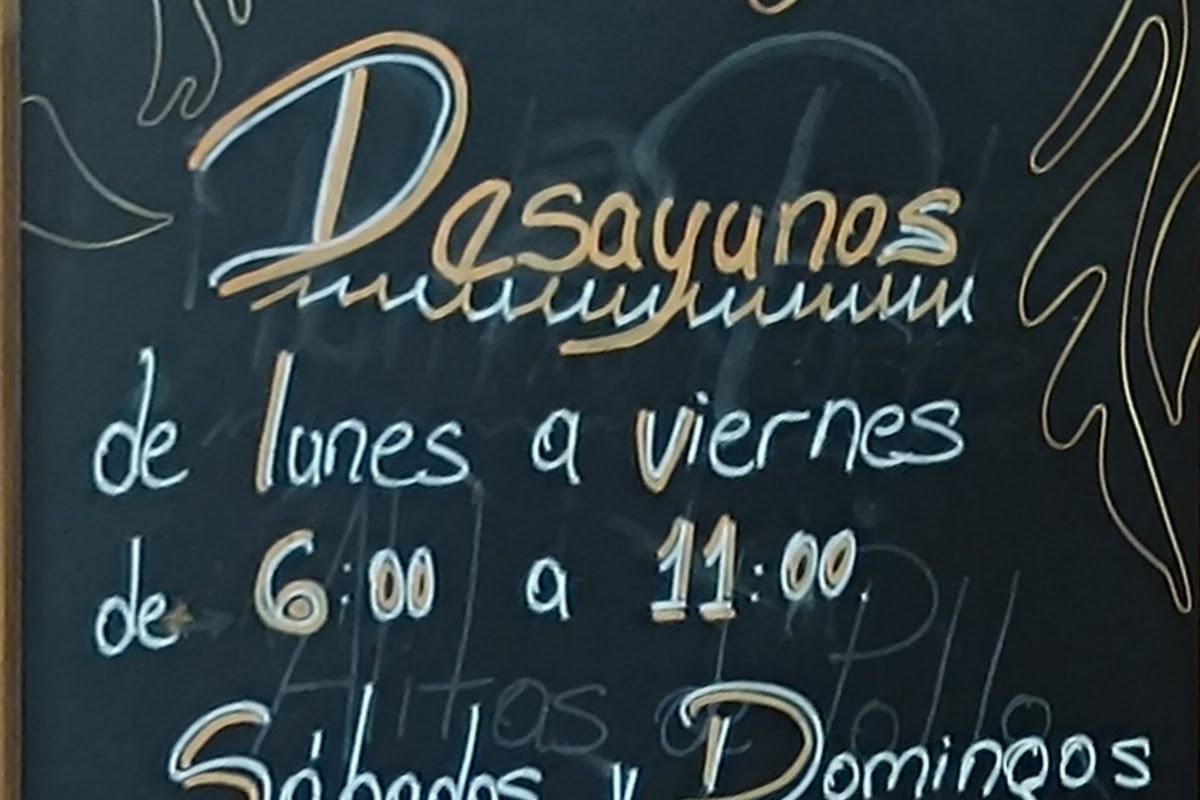 Desayunos
de lunes a viernes
de 6:00 a 11:00.
Sábados y Domingos